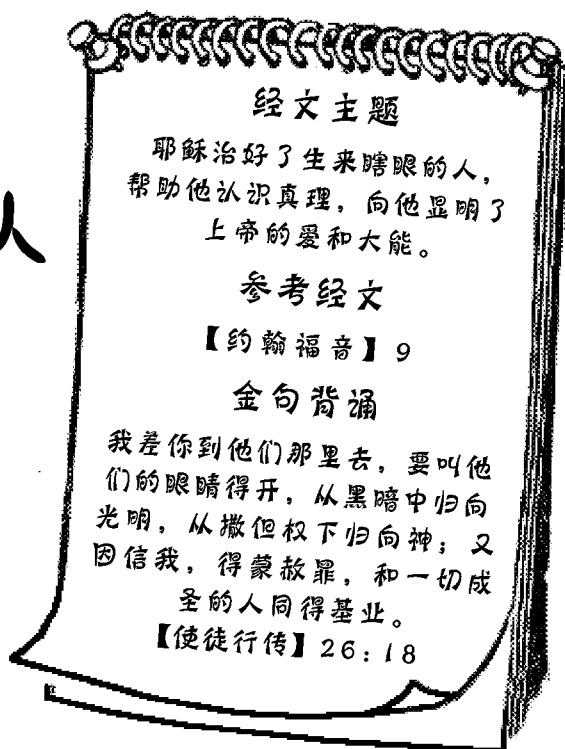 人
经文主题
耶稣治好了生来瞎眼的人，
帮助他认识真理，向他显明了
上帝的爱和大能。
参考经文
【约翰福音】9
金句背诵
我差你到他们那里去，要叫他
们的眼睛得开，从黑暗中归向
光明，从撒但权下归向神；又
因信我，得蒙赦罪，和一切成
圣的人同得基业。
【使徒行传】26：18